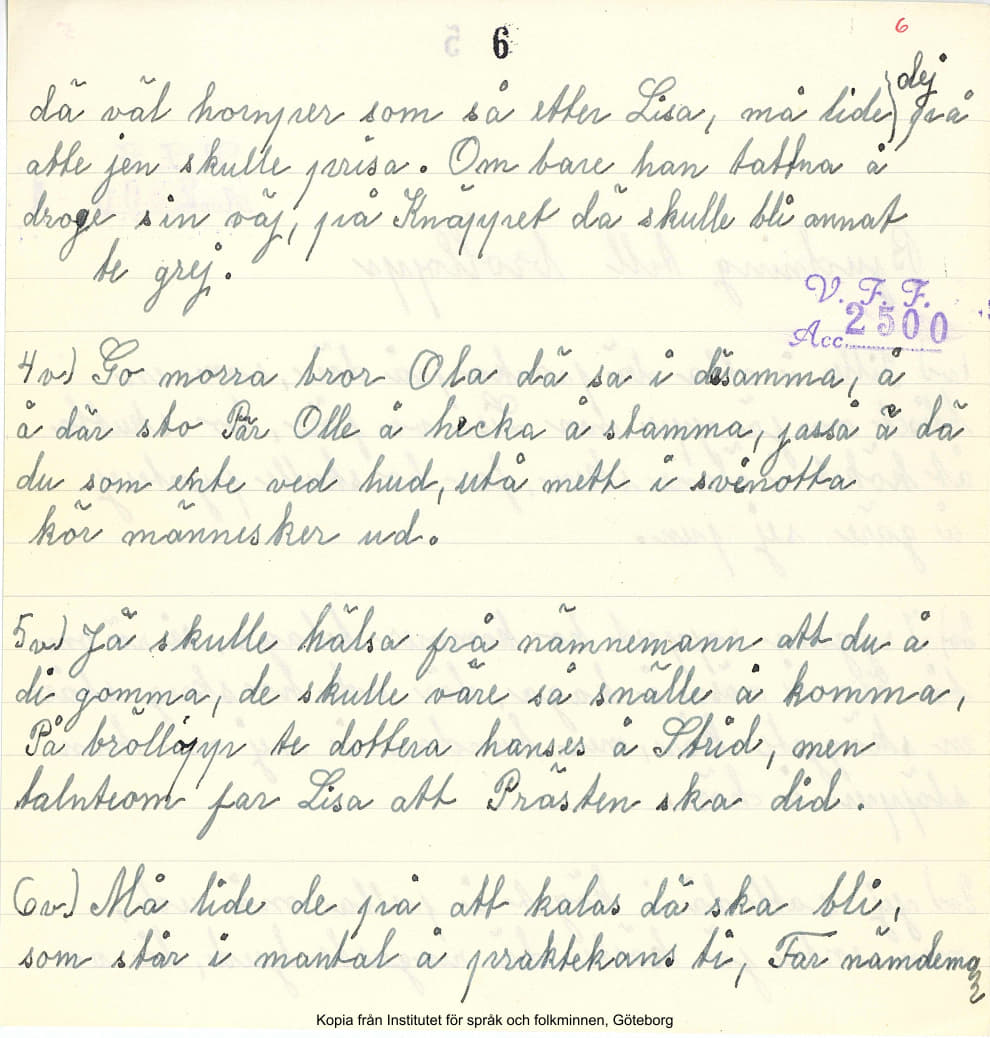 6
6
dä väl hornper som så etter Lisa, må lide dej på
atte jen skulle prisa. Om bare han tattna å
droge sin väj, på Knäppet dä skulle bli annat
te grej.
V. F. F.
Acc. 2500
4v) Go morra bror Ola dä sa i däsamma, å
å där sto Pär Olle å hecka å stamma, jasså ä dä
du som ente ved hud, utå mett i svinotta
kör männesker ud.
5v) Jå skulle hälsa frå nämnemann att du å
di gomma, de skulle väre så snälle å komma,
På brölläpp te dottera hanses å Strid, men
talnteom far Lisa att Prästen ska did.
6v) Må lide de på att kalas dä ska bli,
som står i mantal å praktekans ti, Far nämdeman
Kopia från Institutet för språk och folkminnen, Göteborg